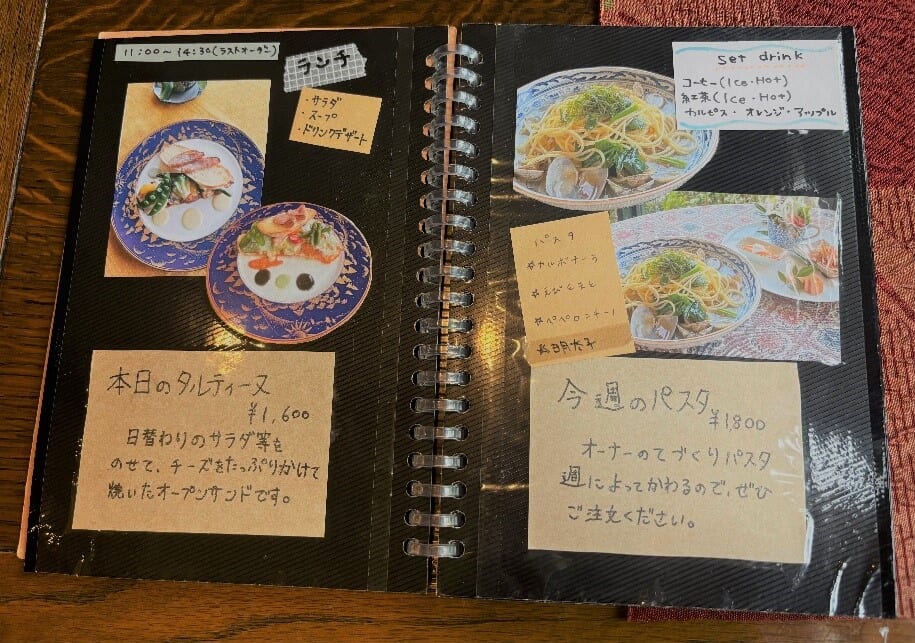 11:00〜14:30(ラストオーダー)
ランチ
・サラダ
・スープ
・ドリンクデザート
本日のタルティーヌ
¥1,600
日替わりのサラダ等を
のせて、チーズをたっぷりかけて
焼いたオープンサンドです。
set drink
コーヒー(Ice・Hot)
紅茶(Ice・Hot)
カルピス オレンジ・アップル
パスタ
☆カルボナーラ
☆えびとまと
☆ペペロンチーノ
☆明太子
今週のパスタ
¥1,800
オーナーのてづくりパスタ
週によってかわるので、ぜひ
ご注文ください。